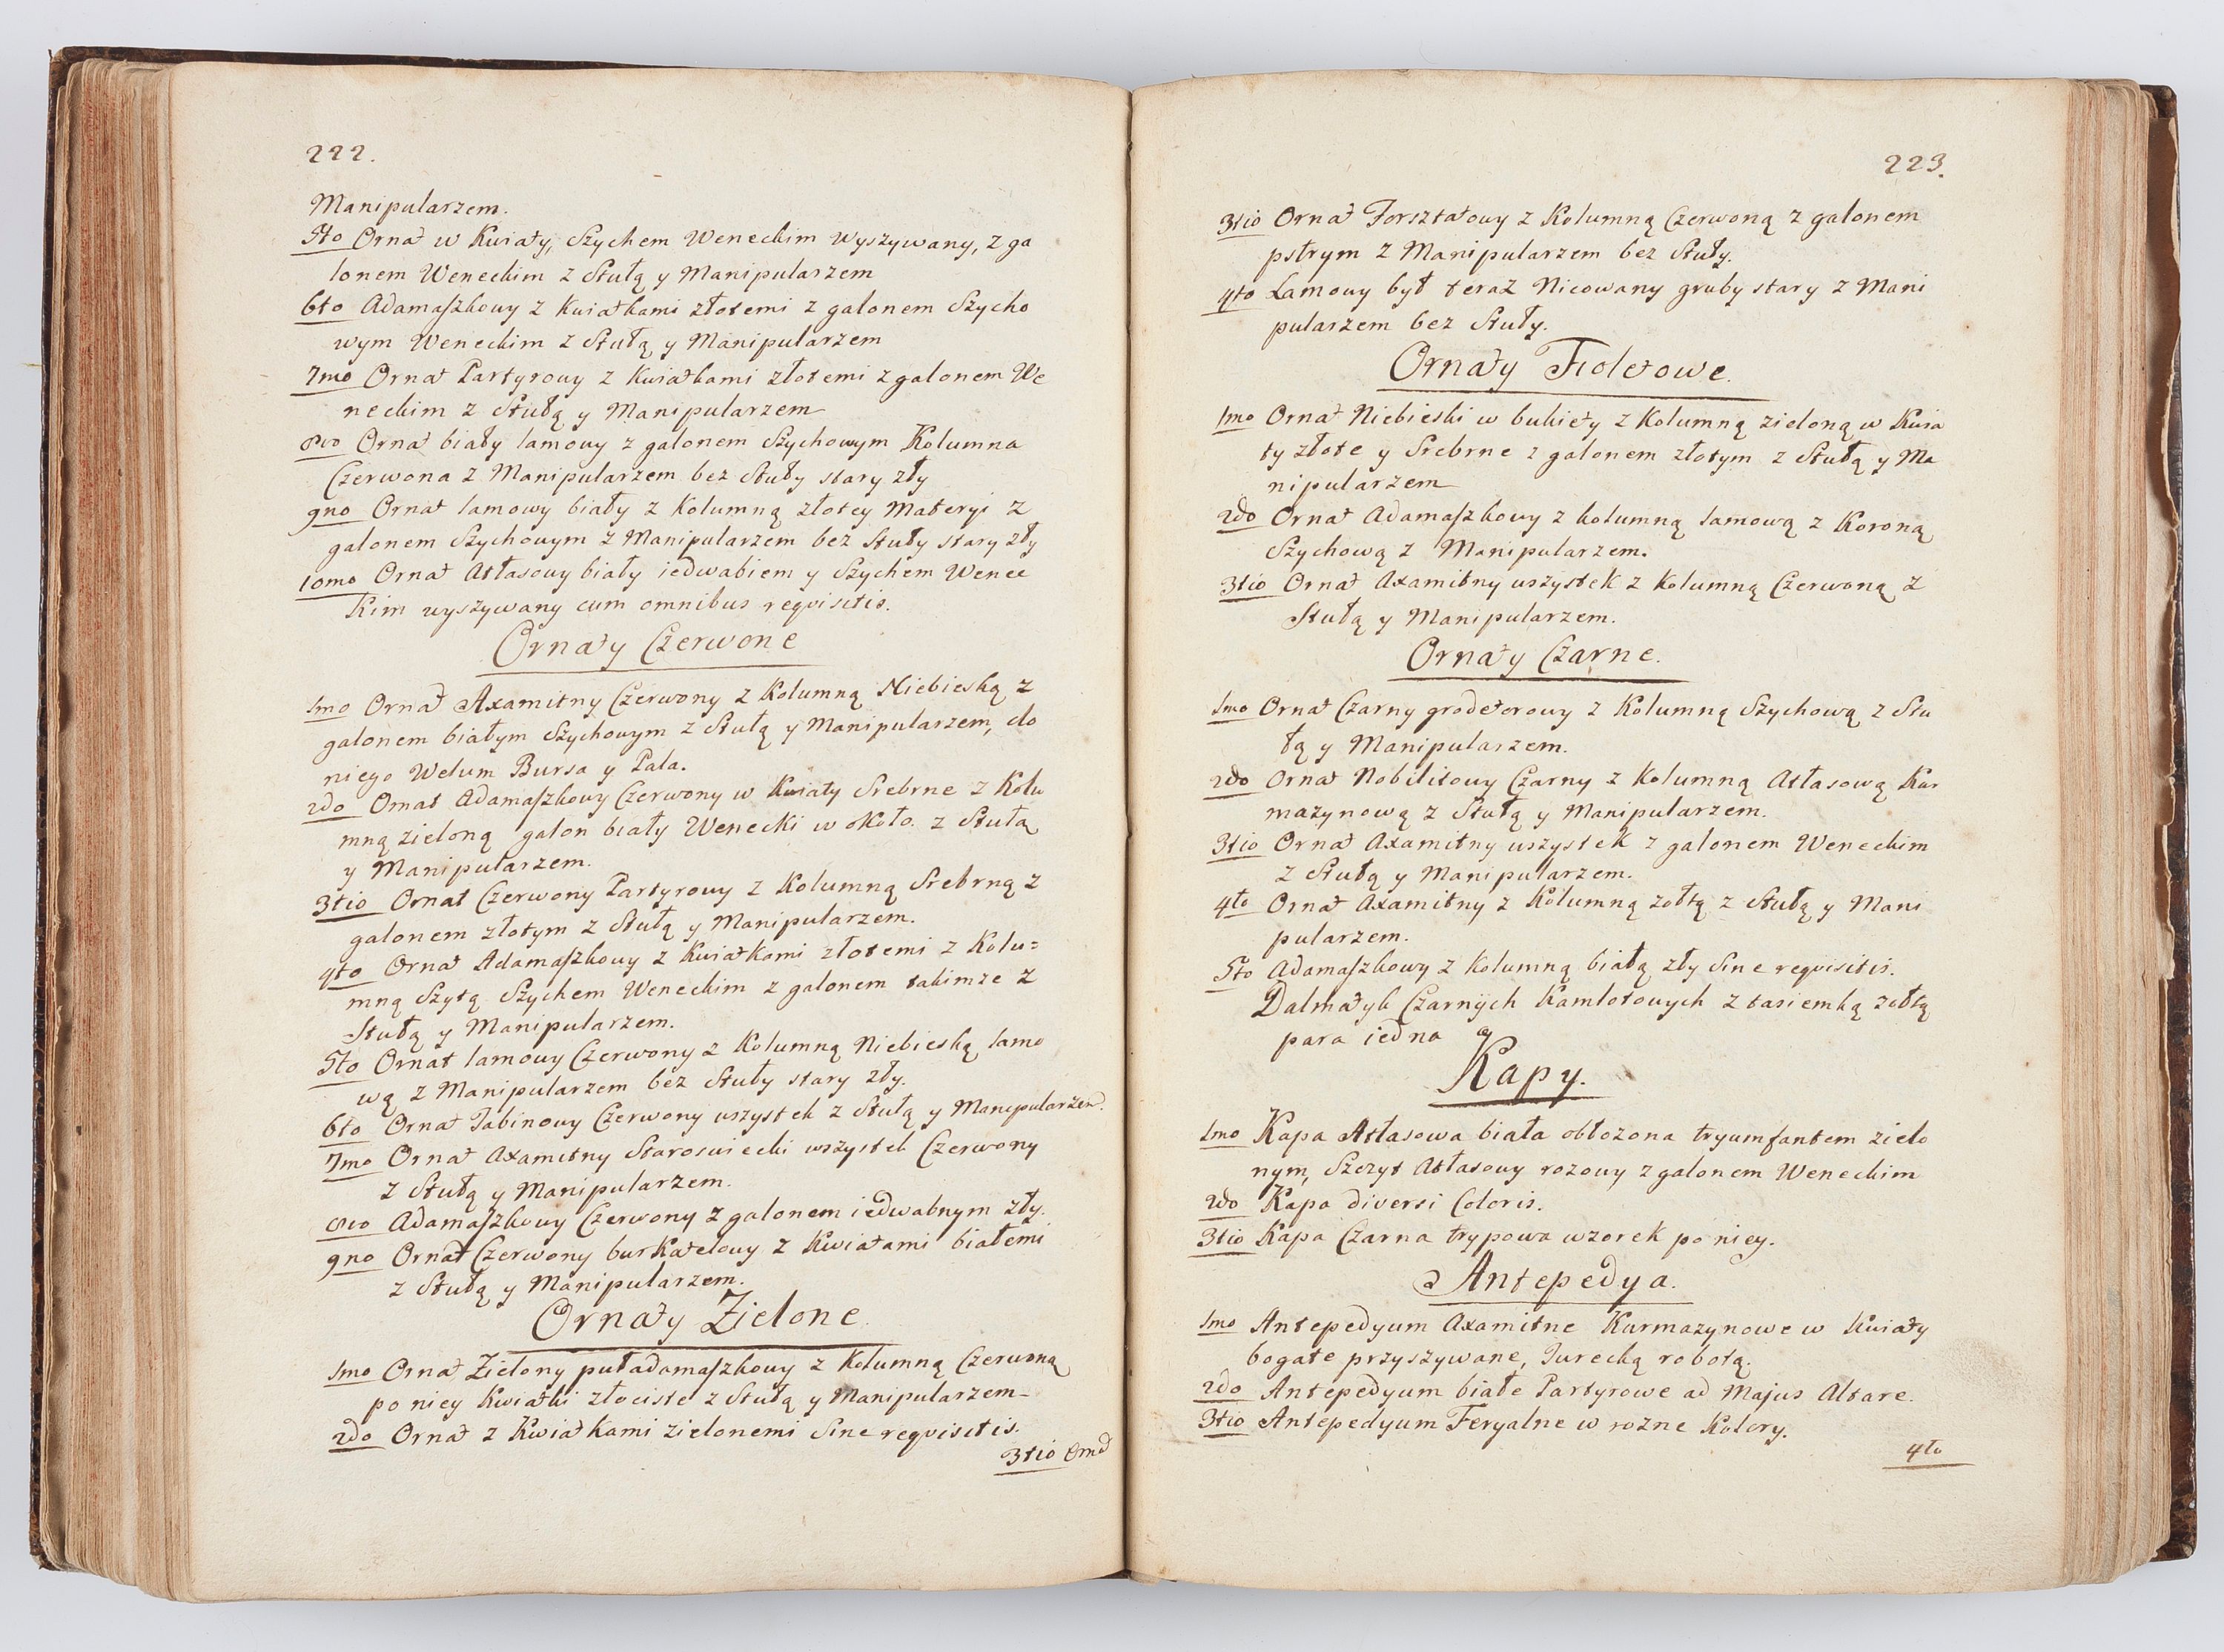 222.
Manipularzem.
5to Ornat w Kwiaty, Szychem Weneckim wyszywany, z ga
lonem Weneckim z Stułą y Manipularzem
6to Adamaſzkowy z kwiatkami złotemi z galonem Szycho
wym Weneckim z Stułą y Manipularzem
7mo Ornat Partyrowy z kwiatkami złotemi z galonem We
neckim z Stułą y Manipularzem
8vo Ornat biały lamowy z galonem Szychowym Kolumna
Czerwona z Manipularzem bez Stuły stary zły
9no Ornat lamowy biały z Kolumną złotey Materyi z
galonem Szychowym z Manipularzem bez Stuły stary zły
10mo Ornat Atłasowy biały iedwabiem y Szychem Wenec
kim wyszywany cum omnibus reqvisitis.
Ornaty Czerwone
1mo Ornat Axamitny Czerwony z Kolumną Niebieską z
galonem białym Szychowym z Stułą y Manipularzem, do
niego Welum Bursa y Pala.
2do Ornat Adamaſzkowy Czerwony w Kwiaty Srebrne z Kolu
mną zieloną galon biały Wenecki w około. z Stułą
y Manipularzem.
3tio Ornat Czerwony Partyrowy z Kolumną Srebrną z
galonem złotym z Stułą y Manipularzem.
4to Ornat Adamaſzkowy z Kwiatkami złotemi z Kolu=
mną Szytą Szychem Weneckim z galonem takimze z
Stułą y Manipularzem.
5to Ornat lamowy Czerwony z Kolumną Niebieską lamo
wą z Manipularzem bez Stuły stary zły.
6to Ornat Tabinowy Czerwony wszystek z Stułą y Manipularzem.
7mo Ornat Axamitny Staroswiecki wszystek Czerwony
z Stułą y Manipularzem.
8vo Adamaſzkowy Czerwony z galonem iedwabnym zły.
9no Ornat Czerwony burkatelowy z Kwiatami białemi
z Stułą y Manipularzem.
Ornaty Zielone.
1mo Ornat Zielony puładamaſzkowy z Kolumną Czerwoną
po niey Kwiatki złociste z Stułą y Manipularzem
2do Ornat z Kwiatkami zielonemi Sine reqvisitis.
3tio Ornat
223.
3tio Ornat Forsztatowy z Kolumną Czerwoną z galonem
pstrym z Manipularzem bez Stuły.
4to Lamowy był teraz Nicowany gruby stary z Mani
pularzem bez Stuły.
Ornaty Fioletowe.
1mo Ornat Niebieski w bukiety z Kolumną zieloną w Kwia
ty złote y Srebrne z galonem złotym z Stułą y Ma
nipularzem
2do Ornat Adamaſzkowy z kolumną lamową z Koroną
Szychową z Manipularzem.
3tio Ornat Axamitny wszystek z Kolumną Czerwoną z
Stułą y Manipularzem.
Ornaty Czarne.
1mo Ornat Czarny grodetorowy z Kolumną Szychową z Stu
łą y Manipularzem.
2do Ornat Nobilitowy Czarny z Kolumną Atłasową Kar
mazynową z Stułą y Manipularzem.
3tio Ornat Axamitny wszystek z galonem Weneckim
z Stułą y Manipularzem.
4to Ornat Axamitny z Kolumną zołtą z Stułą y Mani
pularzem.
5to Adamaſzkowy z kolumną białą zły Sine reqvisitis.
Dalmatyk Czarnych Kamlotowych z tasiemką zołtą
para iedna
Kapy.
1mo Kapa Atłasowa biała obłozona tryumfantem zielo
nym, Szczyt Atłasowy rozowy z galonem Weneckim
2do Kapa diversi Coloris.
3tio Kapa Czarna trypowa wzorek po niey.
Antepedya.
1mo Antepedyum Axamitne Karmazynowe w Kwiaty
bogate przyszywane, Turecką robotą.
2do Antepedyum białe Partyrowe ad Majus Altare.
3tio Antepedyum Feryalne w rozne Kolory.
4to